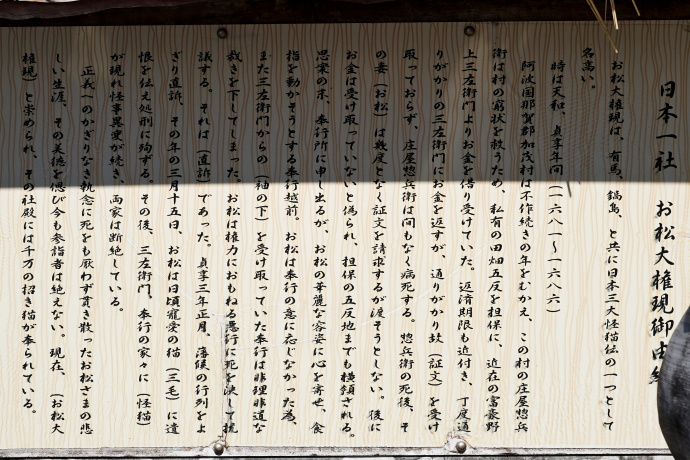 日本一社　お松大権現御由緒
お松大権現は、有馬、鍋島、と共に日本三大怪猫伝の一つとして
名高い。
時は天和、貞享年間（一六八一～一六八六）
阿波国那賀郡加茂村は不作続きの年をむかえ、この村の庄屋惣兵
衛は村の窮状を救うため、私有の田畑五反を担保に、近在の富豪野
上三左衛門よりお金を借り受けていた。返済期限も近付き、丁度通
りがかりの三左衛門にお金を返すが、通りがかり故（証文）を受け
取っておらず、庄屋惣兵衛は間もなく病死する。惣兵衛の死後、そ
の妻（お松）は幾度となく証文を請求するが渡そうとしない。後に
お金は受け取っていないと偽られ、担保の五反地までも横領される。
思案の末、奉行所に申し出るが、お松の華麗な容姿に心を寄せ、食
指を動かそうとする奉行越前。お松は奉行の意に応じなかった為、
また三左衛門からの（袖の下）を受け取っていた奉行は非理非道な
裁きを下してしまった。お松は権力におもねる悪行に死を決して抗
議する。それは（直訴）であった。貞享三年正月、藩候の行列をよ
ぎり直訴、その年の三月十五日、お松は日頃寵愛の猫（三毛）に遺
恨を伝え処刑に殉ずる。その後、三左衛門、奉行の家々に（怪猫）
が現れ怪事異変が続き、両家は断絶している。
正義へのかぎりなき執念に死をも厭わず貫き散ったお松さまの悲
しい生涯、その美徳を偲び今も参詣者は絶えない。現在、（お松大
権現）と崇められ、その社殿には千万の招き猫が奉られている。